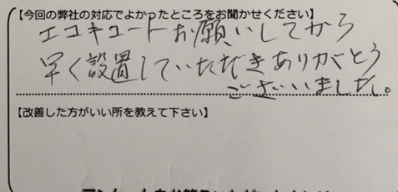 【今回の弊社の対応でよかったところをお聞かせください】
エコキュートお願いしてから
早く設置していただきありがとう
ございいました。
【改善した方がいい所を教えて下さい】